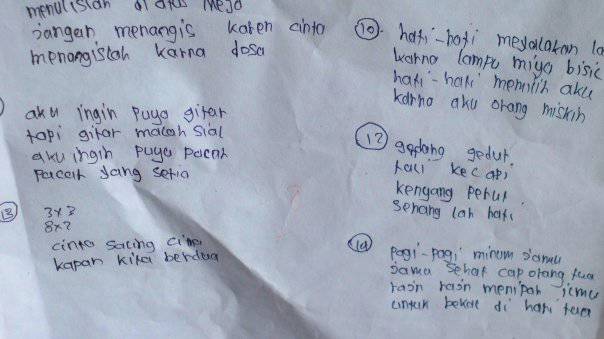 menulislah di atas meja
jangan menangis karen cinta
menangislah karna dosa
aku ingin puya gitar
tapi gitar macah sial
aku ingin puya pacar
pacar yang setia
13
3x3
8x2
cinta saling cinta
kapan kita berdua
10. hati-hati meyalakan la
karna lampu miya bisic
hati-hati memilih aku
karna aku orang miskin
12 gedung
tali kecapi
kenyang perut
senang lah hati
14 pagi-pagi minum jamu
jamu sehat cap orang tua
rajn rajn menipah ilmu
untuk bekal di hari tua